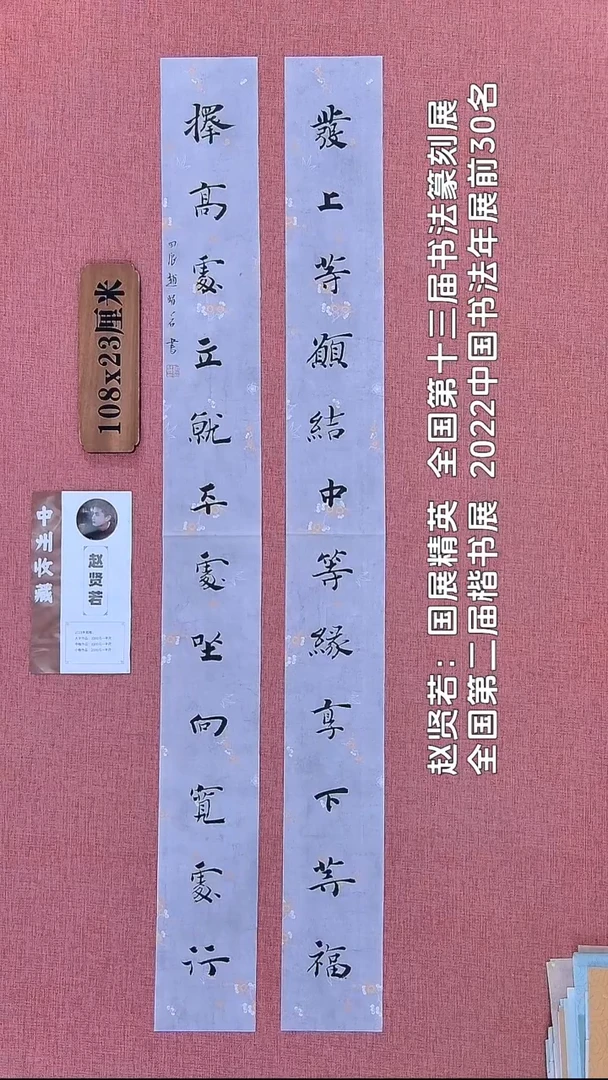 發上等願結中等緣享下等福
擇高處立就平處坐向寬處行
甲辰趙賢若書
108x23厘米
中州收藏
赵贤若
赵贤若：国展精英 全国第十三届书法篆刻展
全国第二届楷书展 2022中国书法年展前30名